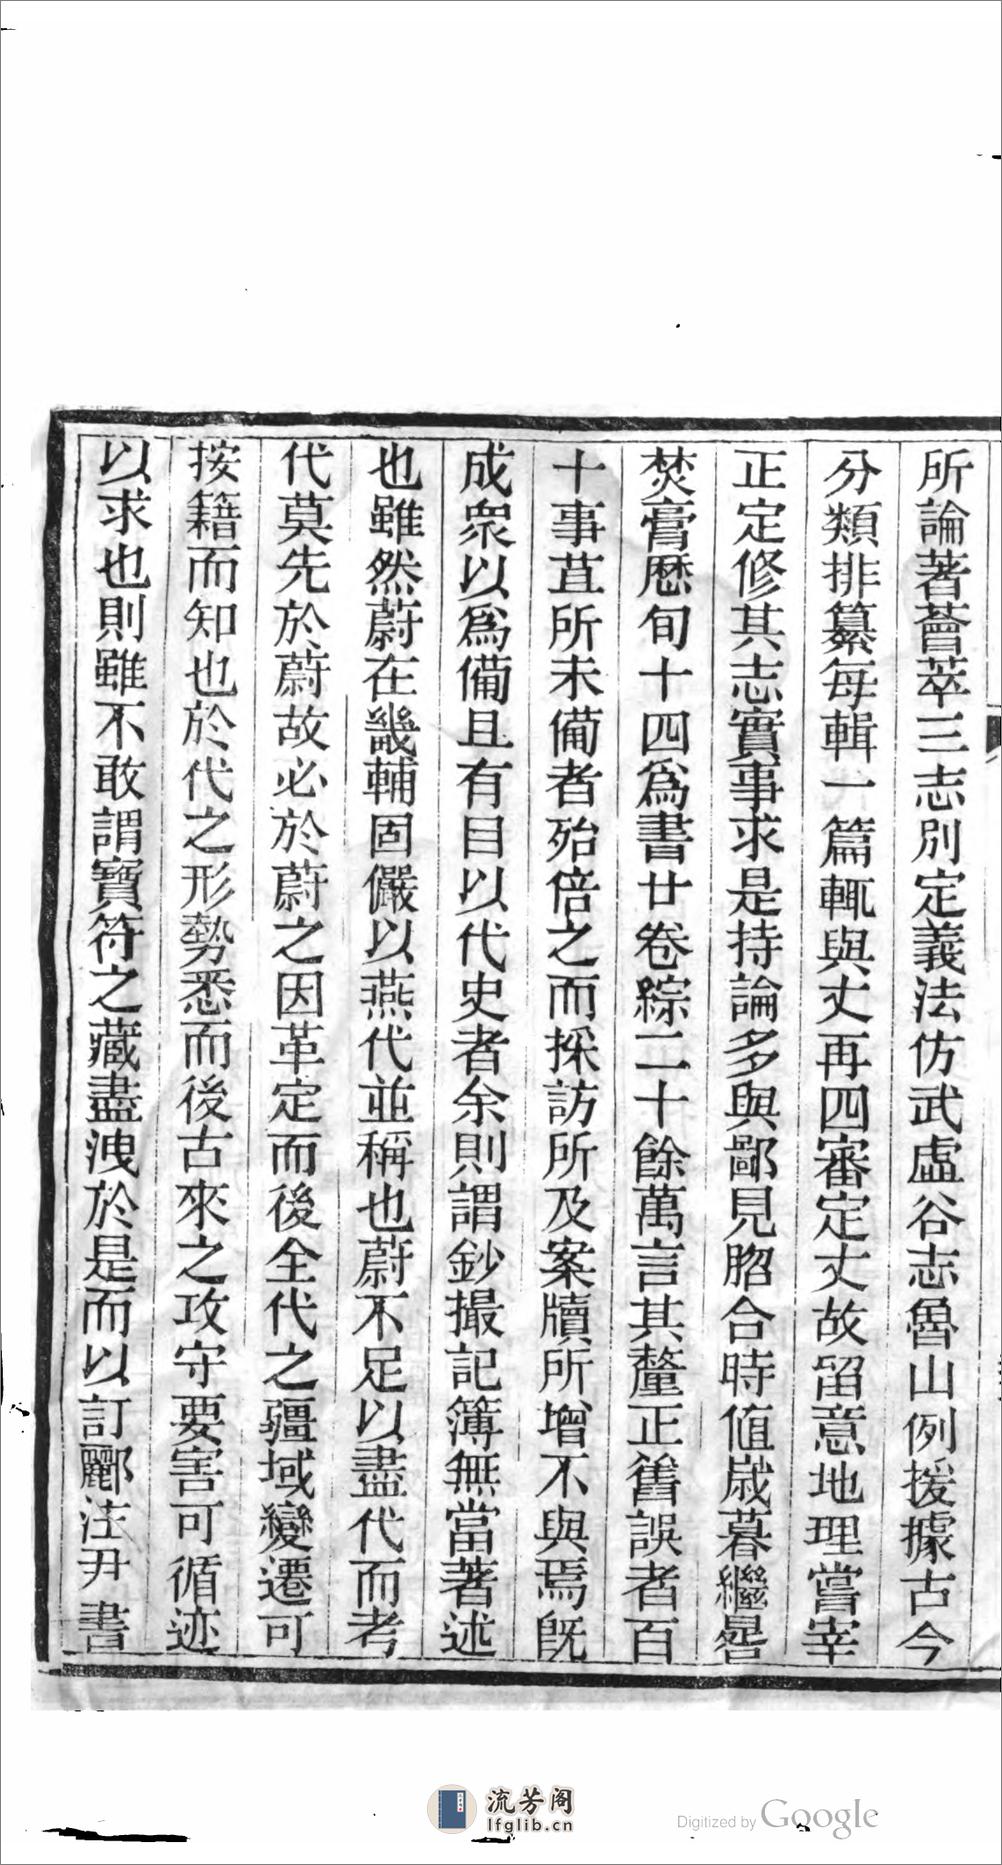 所論著薈萃三志別定義法仿武虛谷志魯山例援據古今
分類排纂每輯一篇輒與丈再四審定丈故留意地理嘗宰
正定修其志實事求是持論多與鄙見脗合時值歲暮繼晷
焚膏歷旬十四爲書廿卷綜二十餘萬言其釐正舊誤者百
十事苴所未備者殆倍之而採訪所及案牘所增不與焉旣
成衆以爲備且有目以代史者余則謂鈔撮記簿無當著述
也雖然蔚在畿輔固儼以燕代並稱也蔚不足以盡代而考
代莫先於蔚故必於蔚之因革定而後全代之疆域變遷可
按籍而知也於代之形勢悉而後古來之攻守要害可循迹
以求也則雖不敢謂寶符之藏盡洩於是而以訂酈注尹書
流芳阁
lfglib.cn
Digitized by Google